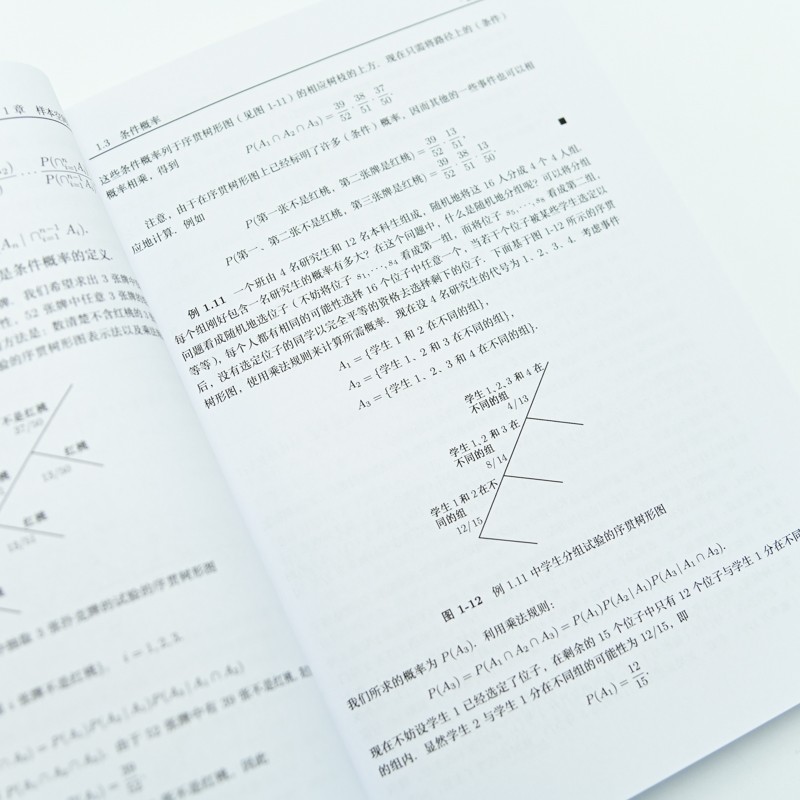 1 章 样本空
P(∩
Aₙ | ∩ Aᵢ).
是条件概率的定义
牌. 我们希望求出 3 张牌
性, 52 张牌中任意 3 张牌的
方法是: 数清楚不含红桃的 3
验的序贯树形图表示法以及乘法
不是红桃
37/50
红桃
13/50
红桃
13/51
3 张扑克牌的试验的序贯树形图
张牌不是红桃}, i = 1, 2, 3.
39
52
张不是红桃, 因此
1.3 条件概率
这些条件概率列于序贯树形图 (见图 1-11) 的相应树枝的上方. 现在只需将路径上的 (条件)
概率相乘, 得到
P(A₁ ∩ A₂ ∩ A₃) = 39/52 · 38/51 · 37/50.
注意, 由于在序贯树形图上已经标明了许多 (条件) 概率, 因而其他的一些事件也可以相
应地计算. 例如
P(第一张不是红桃, 第二张牌是红桃) = 39/52 · 13/51,
P(第一、第二张不是红桃, 第三张牌是红桃) = 39/52 · 38/51 · 13/50.
■
例 1.11 一个班由 4 名研究生和 12 名本科生组成, 随机地将这 16 人分成 4 个 4 人组.
每个组刚好包含一名研究生的概率有多大? 在这个问题中, 什么是随机地分组呢? 可以将分组
问题看成随机地选位子 (不妨将位子 s₁, · · · , s₄ 看成第一组, 而将位子 s₅, · · · , s₈ 看成第二组,
等等), 每个人都有相同的可能性选择 16 个位子中任意一个, 当若干个位子被某些学生选定以
后, 没有选定位子的同学以完全平等的资格去选择剩下的位子. 下面基于图 1-12 所示的序贯
树形图, 使用乘法规则来计算所需概率. 现在设 4 名研究生的代号为 1、2、3、4. 考虑事件
A₁ = {学生 1 和 2 在不同的组},
A₂ = {学生 1、2 和 3 在不同的组},
A₃ = {学生 1、2、3 和 4 在不同的组}.
学生 1、2、3 和 4 在
不同的组
4/13
学生 1、2 和 3 在
不同的组
8/14
学生 1 和 2 在不
同的组
12/15
图 1-12 例 1.11 中学生分组试验的序贯树形图
我们所求的概率为 P(A₃). 利用乘法规则:
P(A₃) = P(A₁ ∩ A₂ ∩ A₃) = P(A₁)P(A₂ | A₁)P(A₃ | A₁ ∩ A₂).
现在不妨设学生 1 已经选定了位子, 在剩余的 15 个位子中只有 12 个位子与学生 1 分在不同
的组内. 显然学生 2 与学生 1 分在不同组的可能性为 12/15, 即
P(A₁) = 12/15.